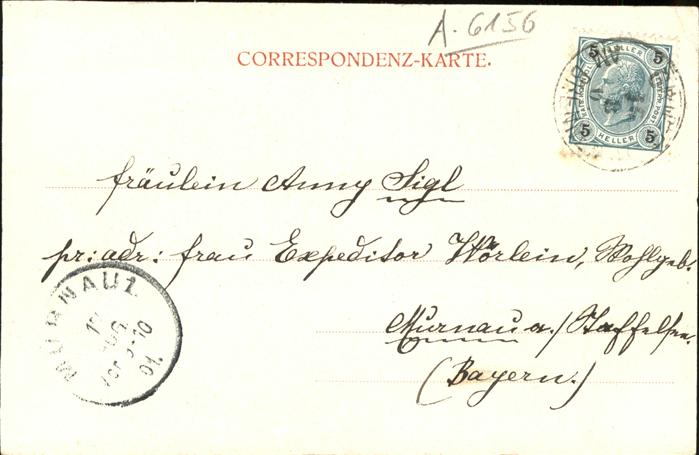 A. 6156
CORRESPONDENZ-KARTE.
5 HELLER 5
5 HELLER 5
Fräulein Anny Sigl
pr: adr: Frau Expeditor Wörlein, Wohlgeb.
Murnau a./Staffelsee.
(Bayern.)
MURNAU 1.
17
AUG.
01.